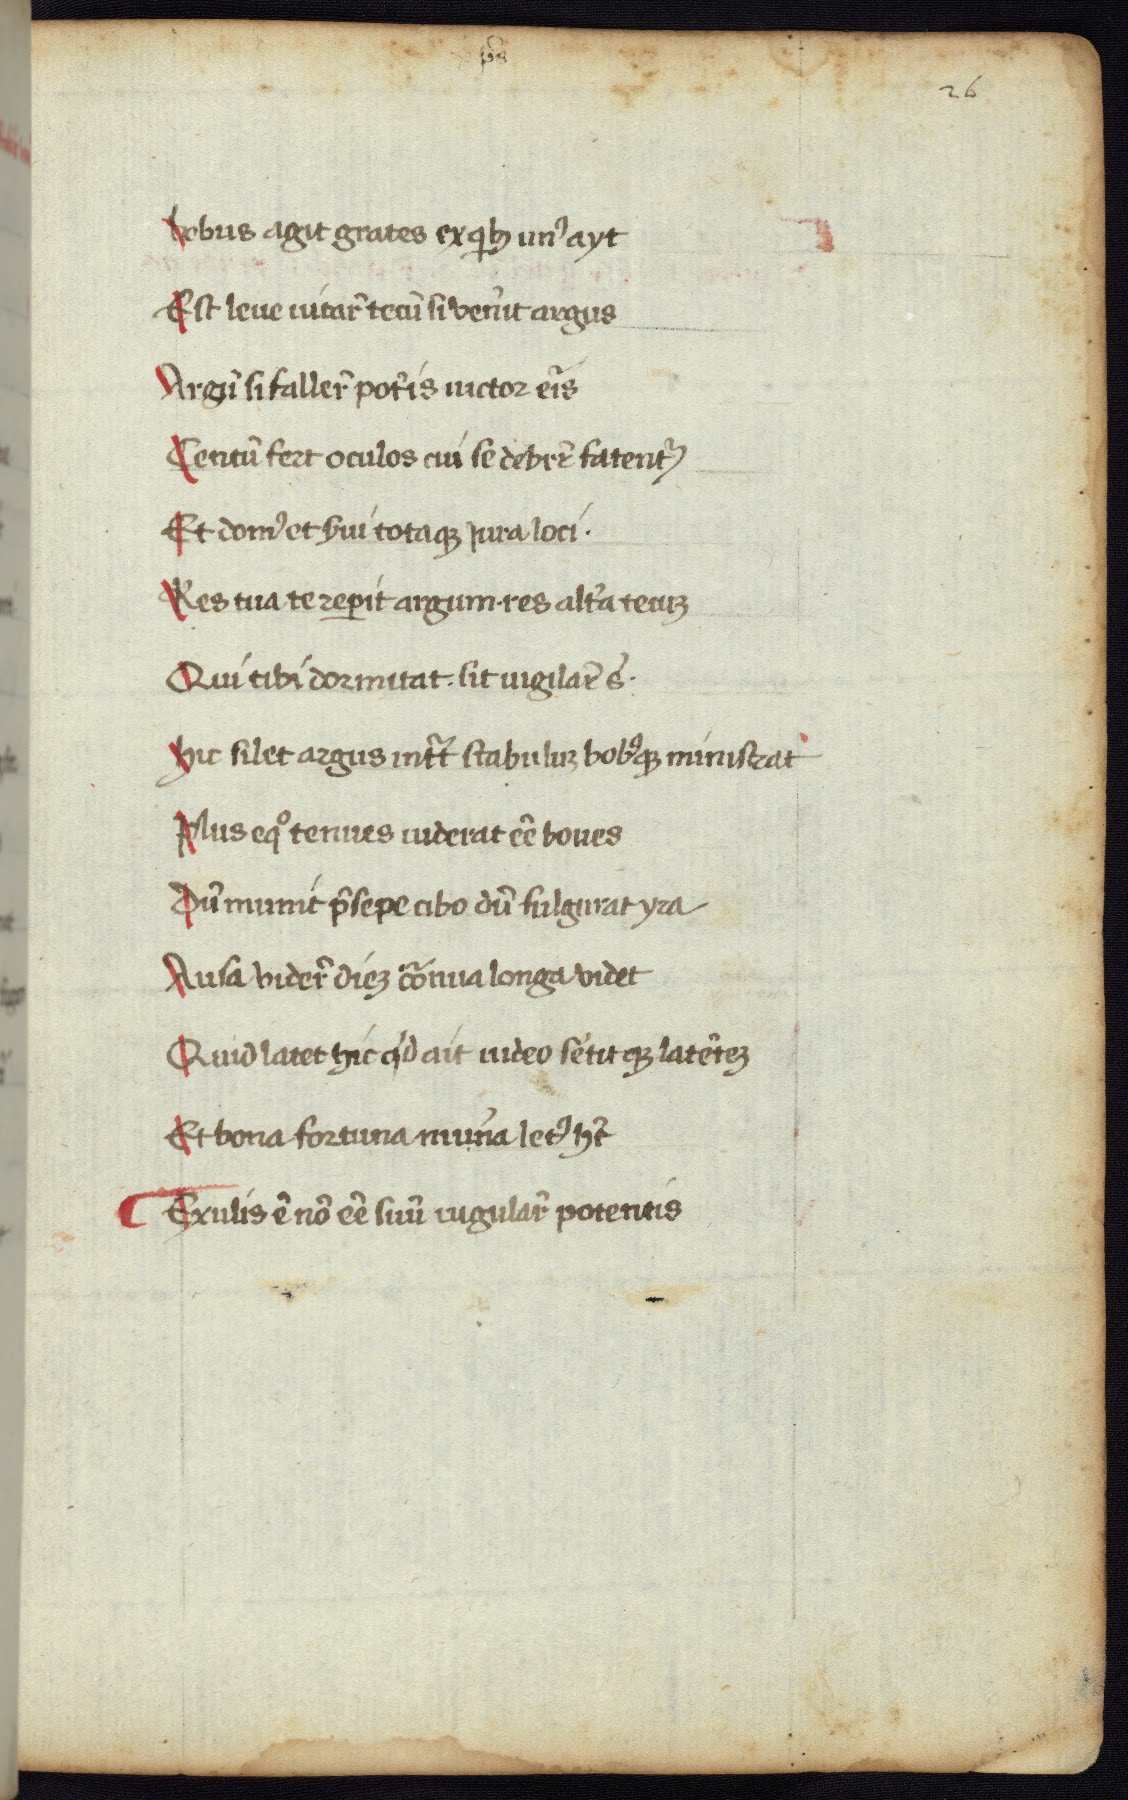 ps
26
bobus agit grates ex qͥbꝫ unꝰ ayt
Est leue uitar̃ tecũ si uen̾it argus
Argũ si faller̃ pot̾is uictor er̃is
Centũ fert oculos cui se deber̃ fatent᷑
Et domꝰ et s̾ui totaqꝫ iura loci.
Res tua te rep̲it argum. res alt̾a tecuꝫ
Qui tibi dormitat. sit uigilar̃ s̾.
hic silet argus int̃t stabuluꝫ bobꝰqꝫ ministrat
Plus eqͦ tenues uiderat eẽ boues
Dũ munit p̃sepe cibo dũ fulgurat yra
Ausa uider̃ dieꝫ cõnua longa videt
Quid latet hic qͥd ait uideo sẽtitqꝫ latẽteꝫ
Et bona fortuna mun̾a letꝰ ht̃
Exulis ẽ nõ eẽ suũ iugular̃ potentis